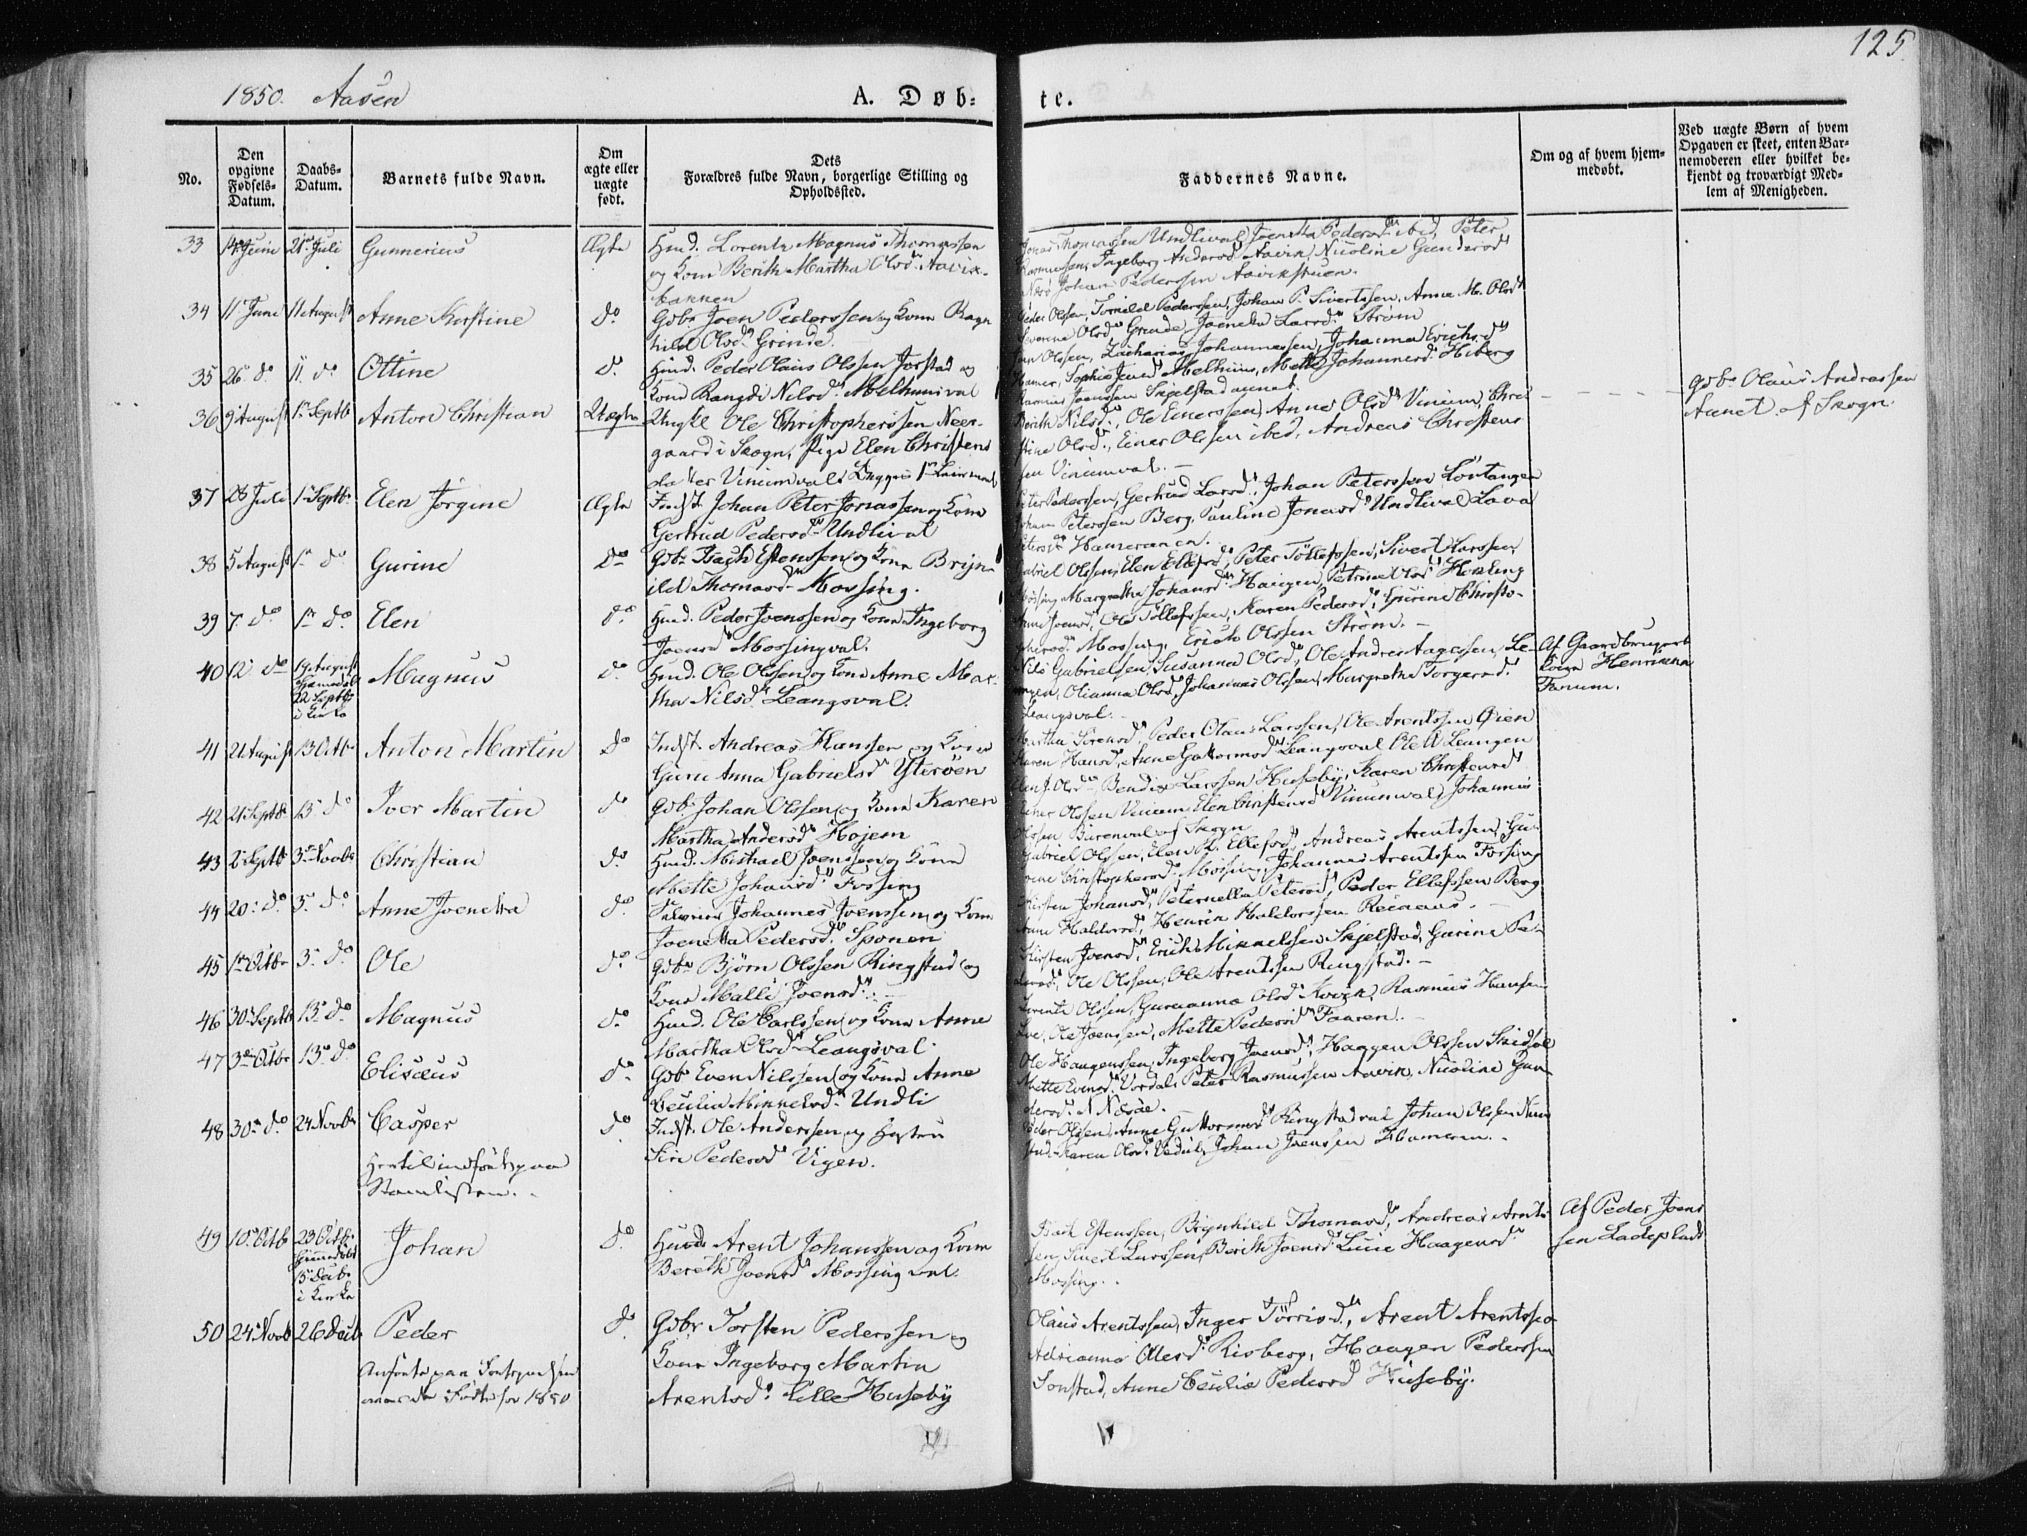 125.
1850. Aasen
A. Døb=
te.
No.
Den opgivne Fødsels-Datum.
Daabs-Datum.
Barnets fulde Navn.
Om ægte eller uægte født.
Dets Forældres fulde Navn, borgerlige Stilling og Opholdssted.
Faddernes Navne.
Om og af hvem hjemmedøbt.
Ved uægte Børn af hvem Opgaven er skeet, enten Barnemoderen eller hvilket bekjendt og troværdigt Medlem af Menigheden.
33 Juni 21 Juli Gunnerius Ægte Huusm. Lorents Magnus Thomassen
og Kone Berith Martha Olsd.
bakken
Jonas Thomassen Undlival, Joenetta Pedersd. ibid, Peter
Rasmussen, Ingeborg Andersd. Aavik, Nicoline Gundersd.
Johan Pederssen Aavikstuen.
34 11 Juni 11 August Anne Kirstine do Gbr. Joen Pederssen og Kone Ragn
hild Olsd. Grinde.
Peder Olsen, Tomeld Pederssen, Johan P. Sivertssen, Anna M. Olsd.
Olsd. Grinde, Joenetta Larsd. Strøm
35 26 do 11 do Ottine do Huusm. Peder Olaus Olssen Jorstad og
Kone Rangdi Nilsd. Melhuusval
Olssen, Zacharias Johannessen, Johanna Erichsd.
Hamer, Sophie Jensd. Melhuus, Mette Johannesd. Hoberg
Rasmus Joenssen Skjelstad annet.
36 9 August 1 Septb Anton Christian Uægte Ungkl Ole Christopherssen Neer-
gaard i Skogn, Pige Elen Christens
datter Vinumval Begges 1ste Leiermaal
Berith Nilsd., Ole Einerssen, Anne Olsd. Vinum, Chri
stine Olsd., Einer Olssen ibid, Andreas Christens
sen Vinumval. -
Gbr. Olaus Andreassen
Aunet af Skogn
37 28 Juli 1 Septb Elen Jørgine Ægte Indst. Johan Peter Jonassen og Kone
Gertrud Pedersd. Undlival
Peter Pederssen, Gertrud Larsd., Johan Peterssen Løvtangen
Johan Peterssen Berg, Pauline Jonasd. Undlival Lava
Petersd. Hameraunen.
38 5 August 1 do Gurine do Gbr. Isach Estenssen og Kone Bryn-
ild Thomasd. Mossing.
Gabriel Olssen, Elen Ellefsd., Peter Tollefssen, Sivert Larssen,
Mossing, Margretha Johansd. Haugen, Petrine Olsd. Hokling
39 7 do 1 do Elen do Huusm. Peder Joenssen og Kone Ingeborg
Joensd. Mossingval.
Anne Joensd., Ole Tollefssen, Karen Pedersd., Gurine Christo-
phersd. Mossing, Erich Olssen Strøm. -
40 12 do 19 August
hjemmedøbt
22 Septb
i Kirke
Magnus do Huusm. Ole Olssen og Kone Anne Mar-
tha Nilsd. Leangsval.
Nils Gabrielsen, Susanna Olsd., Ole Andreas Aagessen, Le-
angen, Olianna Olsd., Johannes Olssen, Margretha Torgersd.
Leangsval.
Af Gaardbruger
Kone Henrikka
Farum.
41 21 August 13 Octb Anton Martin do Indst. Andreas Hanssen og Kone
Guru Anna Gabrielsd. Ytterøen
Martha Sirensd., Peder Olaus Larssen, Ole Arentssen Øien
Karen Hansd., Anne Guttormsd. Leangsval, Ole Leangen
42 21 Septb 13 do Iver Martin do Gbr. Johan Olssen og Kone Karen
Martha Andersd. Hojem
Olsd., Bendix Larssen Husebÿ, Karen Christensd.
Einer Olssen Vinum, Elen Christensd. Vinumval, Johannes
Olssen af Skogn
43 2 Septb 3 Novb Christian do Huusm. Michael Joenssen og Kone
Mette Johansd. Fossing
Gabriel Olssen, Elen Ellefsd., Andreas Arentssen, Gu-
rine Christophersd. Mossing, Johannes Arentssen Fossing
44 20 do 3 do Anne Joenetta do Johannes Joenssen og Kone
Joenetta Pedersd. Sponen
Kirsten Johansd., Peternella Petersd., Peder Ellefssen Berg
Anne Haldorsd., Henrik Haldorssen Reinaas. -
45 1 Octb 3 do Ole do Gbr. Bjørn Olssen Ringstad og
Kone Malli Joensd.
Kirsten Joensd., Erich Mikkelssen Skjelstad, Gurine Pe-
dersd., Ole Olssen, Ole Arentssen Ringstad. -
46 30 Septb 13 do Magnus do Huusm. Ole Carlssen og Kone Anne
Martha Olsd. Leangsval.
Lorents Olssen, Guruanna Olsd. Kvek, Rasmus Hanssen
Lie, Ole Joenssen, Mette Pedersd. Faaren.
47 3 Octb 13 do Elisæus do Gbr. Even Nilssen og Kone Anne
Cecilia Mikkelsd. Undli
Ole Haagenssen, Ingeborg Joensd., Haagen Olssen Skidsæl
Mette Evensd. Vordal, Peter Rasmussen Aavik, Nicoline Gun-
dersd. N Næsse.
48 30 do 24 Novb Casper
Hertil indført paa
Namlisten.
do Indst. Ole Anderssen og Hustru
Siri Pedersd. Vigen.
Peder Olssen, Anne Guttormsd. Ringstadval, Johan Olssen Nun
stad, Karen Olsd. Vedul, Johan Joenssen Hameren.
49 10 Octb 23 Octb
hjemmedøbt
15 Decb
i Kirke
Johan do Huusm. Arent Johanssen og Kone
Bereth Joensd. Mossingval.
Isach Estenssen, Brynhild Thomasd., Andreas Arnts
sen, Sivert Larssen, Berith Joensd. Lucie Haagensd.
Mossing.
Af Peder Joens
sen Ladeplads
50 24 Novb 26 Decb Peder
Anført paa Fortegnelsen
over de Fødte for 1850
do Gbr Torsten Pederssen og
Kone Ingeborg Martin
Arentsd. Lille Husebÿ
Olaus Arentssen, Inger Tørrisd., Arent Arentssen
Adrianna Olesd. Risberg, Haagen Pederssen
Sonstad, Anne Cecilie Pedersd. Husebÿ.